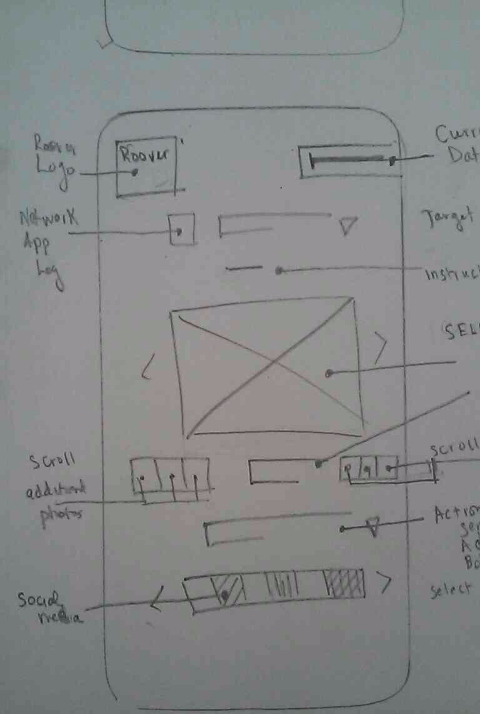 Roover
Logo
Roover
Curr
Dat
Network
App
Log
Target
instruc
SEL
Scroll
additional
photos
Scroll
Action
Ser
Ad
Bo
Select
Social
media